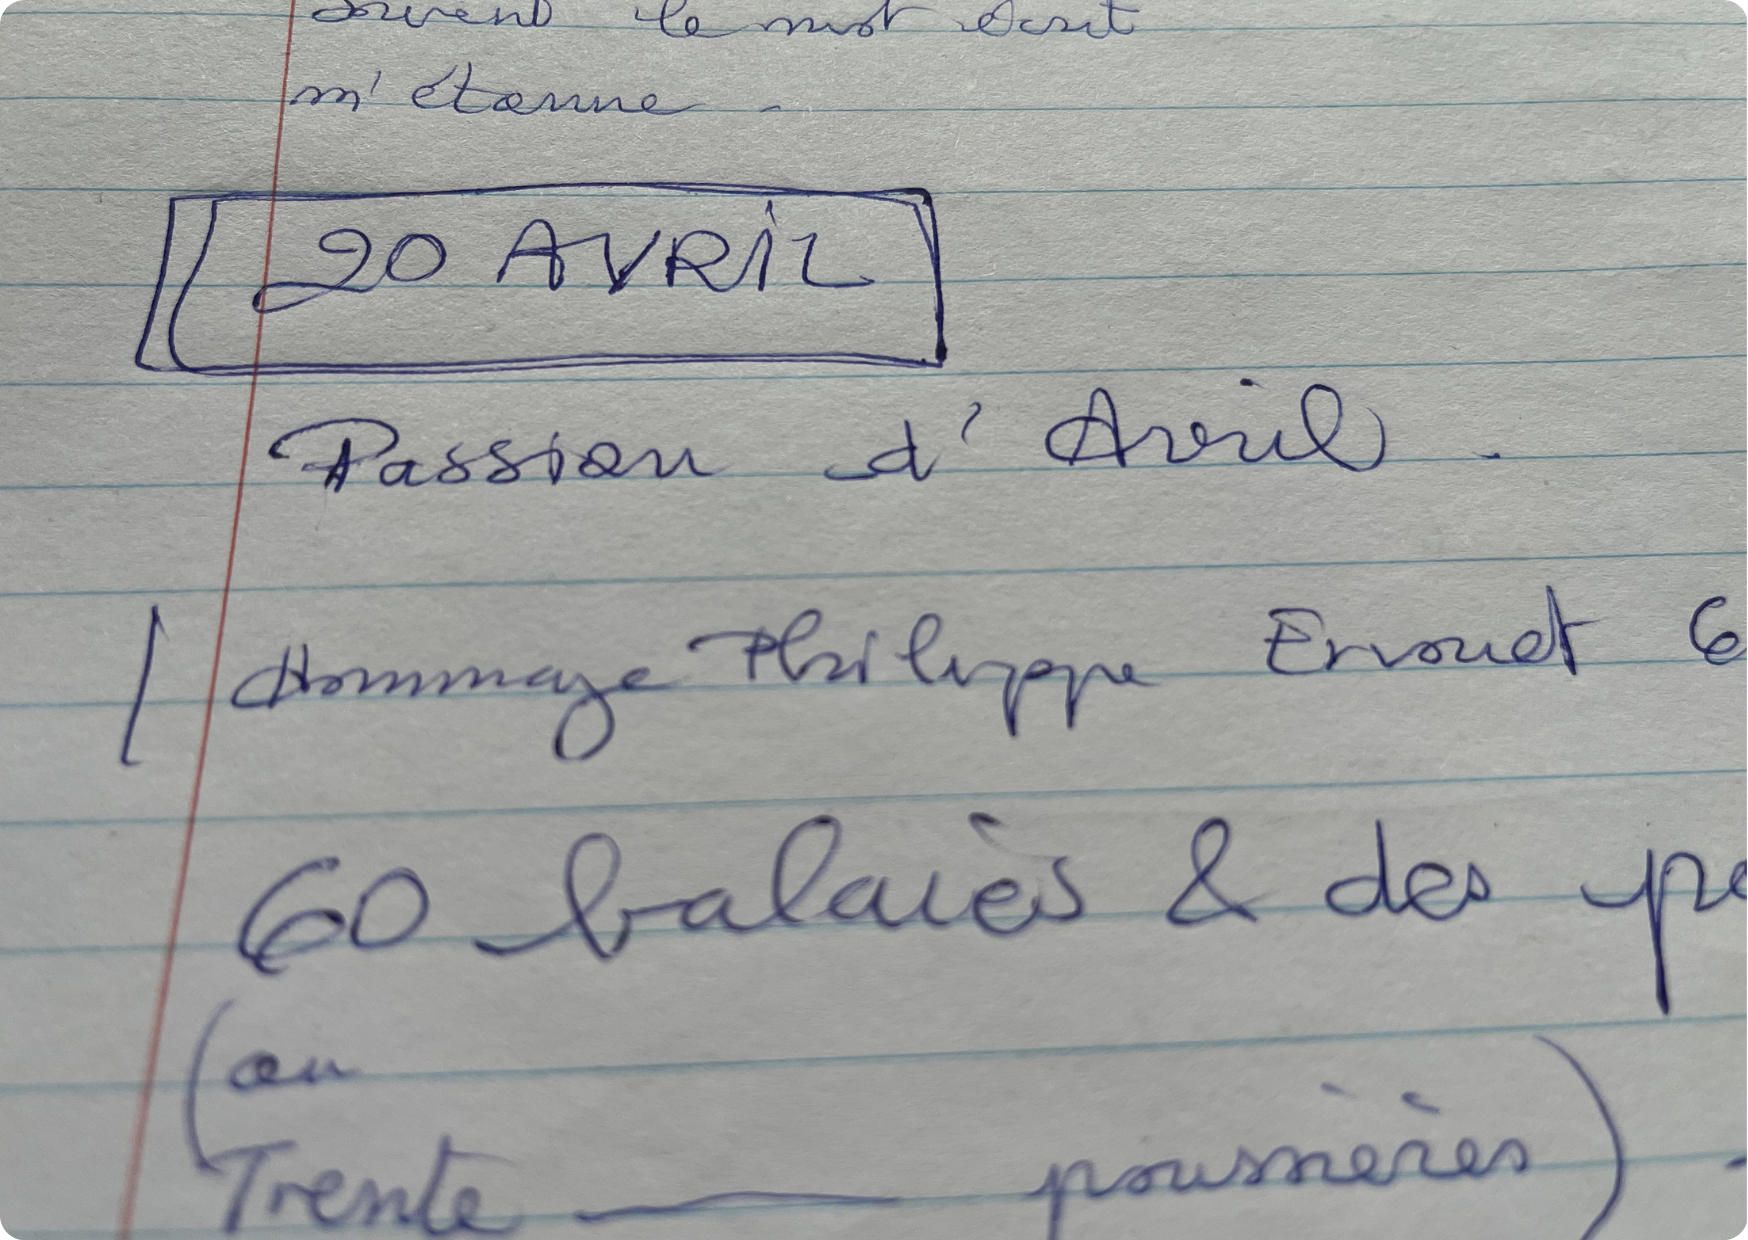 souvent le mot écrit
m'étonne.
20 AVRIL
Passion d'Avril.
Hommage Philippe Ervouet
60 balaiès & des
(ou
Trente — poussières)